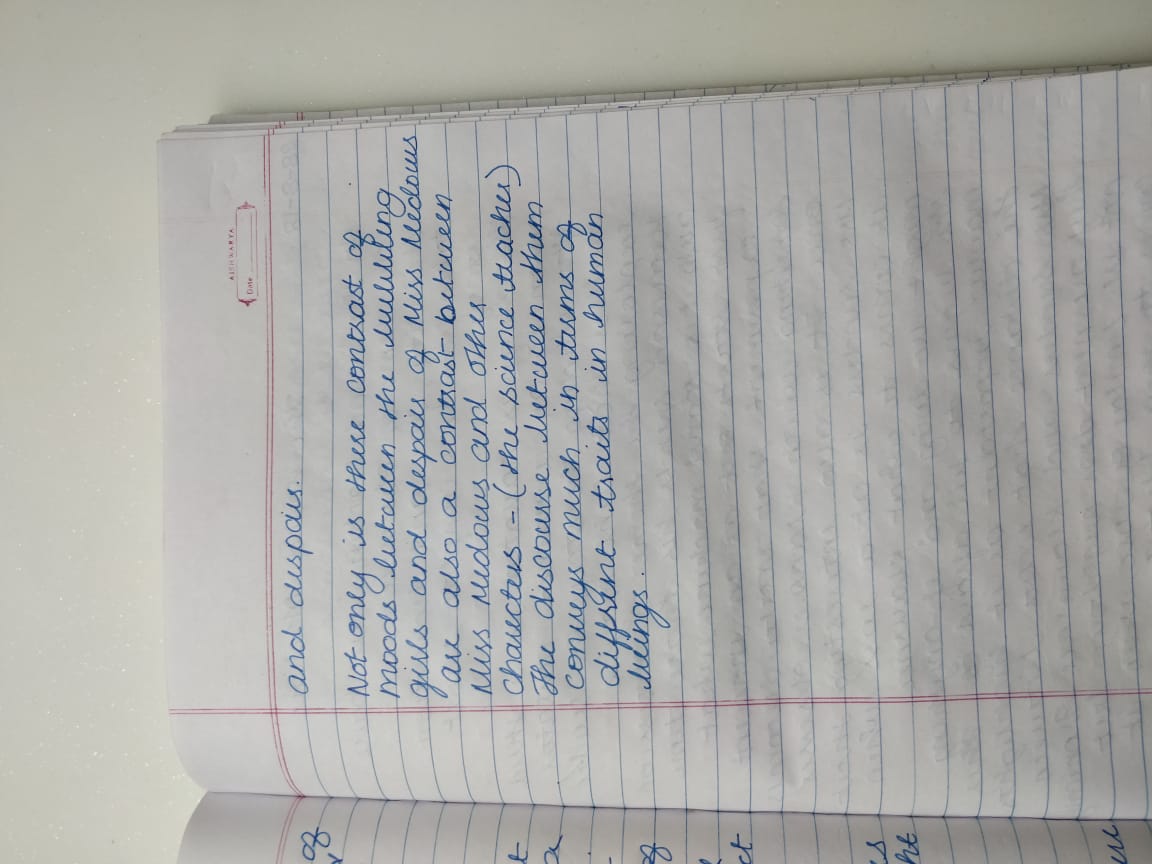 AISHWARYA
Date
and despair.
Not only is there contrast of
moods between the bubbling
girls and despair of Miss Medows
are also a contrast between
Miss Medows and other
charecters - (the science teacher)
The discourse between them
conveys much in terms of
different traits in human
beings.
of
ct
ht